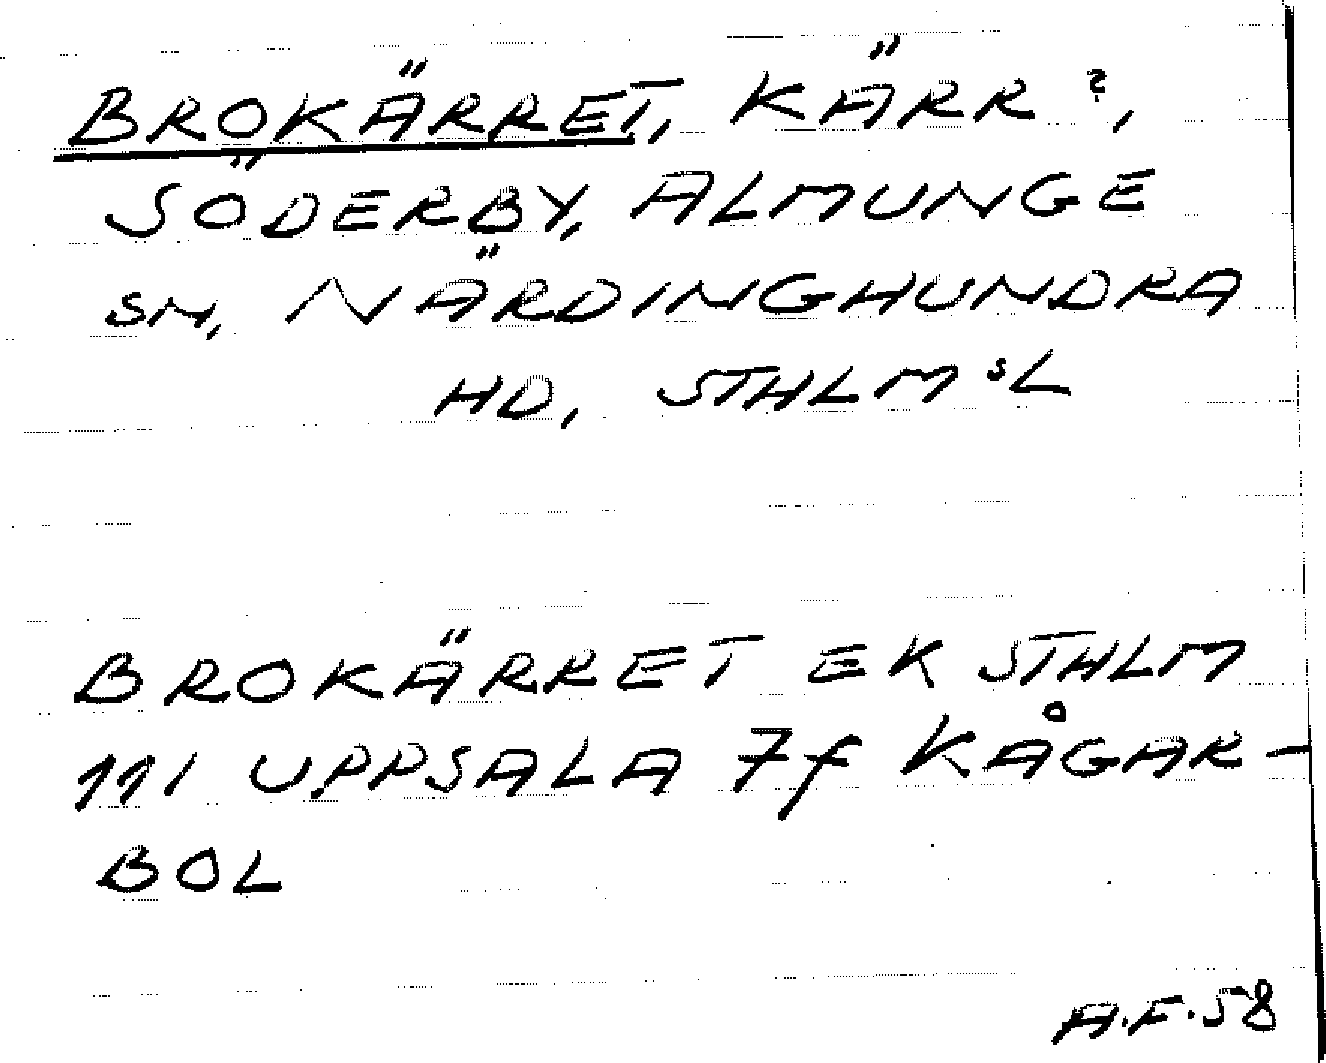 BROKÄRRET, KÄRR?,
SÖDERBY, ALMUNGE
SN, NÄRDINGHUNDRA
HD, STHLMSL
BROKÄRRET EK STHLM
111 UPPSALA 7f KÅGAR-
BOL
A.F.58